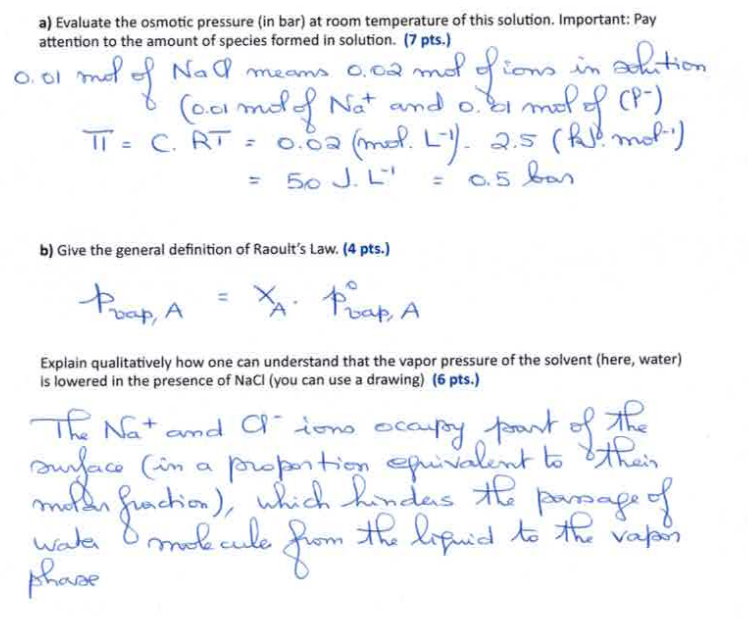 a) Evaluate the osmotic pressure (in bar) at room temperature of this solution. Important: Pay
attention to the amount of species formed in solution. (7 pts.)
0.01 mol of NaCl means 0.02 mol of ions in solution
(0.01 mol of Na⁺ and 0.01 mol of Cl⁻)
Π = C. RT = 0.02 (mol. L⁻¹). 2.5 (kJ. mol⁻¹)
= 50 J. L⁻¹ = 0.5 bar
b) Give the general definition of Raoult's Law. (4 pts.)
p_vap, A = x_A . p°_vap, A
Explain qualitatively how one can understand that the vapor pressure of the solvent (here, water)
is lowered in the presence of NaCl (you can use a drawing) (6 pts.)
The Na⁺ and Cl⁻ ions occupy part of the
surface (in a proportion equivalent to their
molar fraction), which hinders the passage of
water molecule from the liquid to the vapor
phase